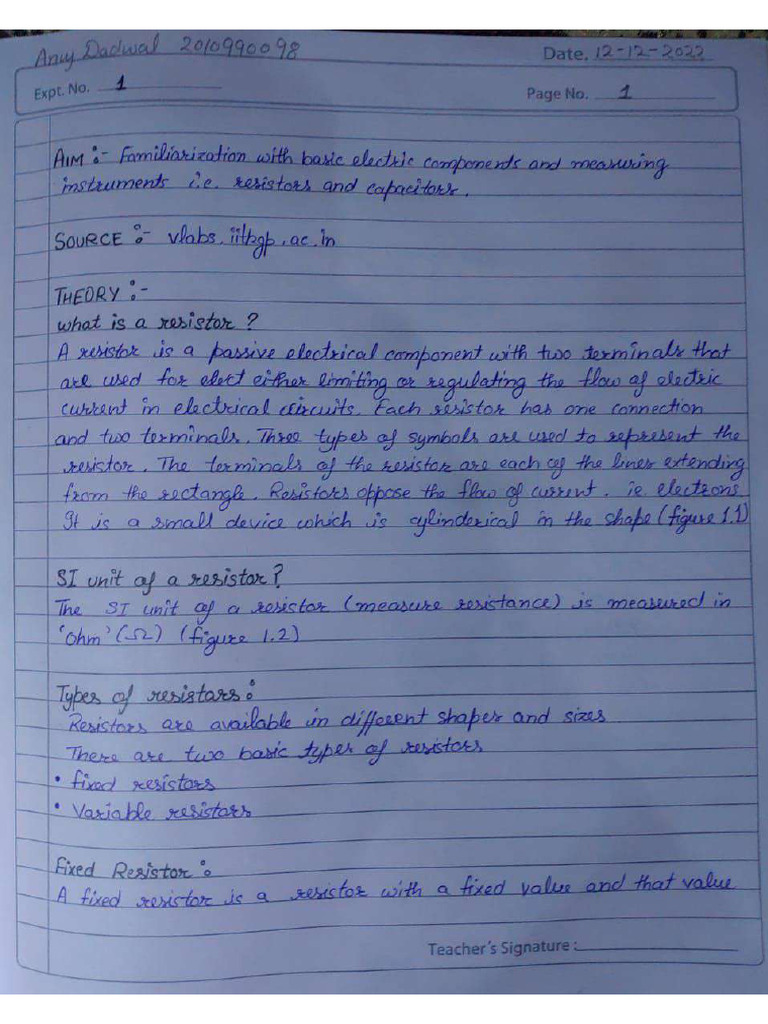 Anuj Dadwal 2010990098
Date. 12-12-2022
Expt. No. 1
Page No. 1
AIM :- Familiarization with basic electric components and measuring
instruments i.e. resistors and capacitors.
SOURCE :- vlabs.iitkgp.ac.in
THEORY :-
what is a resistor ?
A resistor is a passive electrical component with two terminals that
are used for elect either limiting or regulating the flow of electric
current in electrical circuits. Each resistor has one connection
and two terminals. Three types of symbols are used to represent the
resistor. The terminals of the resistor are each of the lines extending
from the rectangle. Resistors oppose the flow of current. ie electrons
It is a small device which is cylinderical in the shape (figure 1.1)
SI unit of a resistor?
The SI unit of a resistor (measure resistance) is measured in
'ohm' (Ω) (figure 1.2)
Types of resistars :
Resistors are available in different shapes and sizes
There are two basic types of resistors
• fixed resistors
• Variable resistars
Fixed Resistor :
A fixed resistor is a resistor with a fixed value and that value
Teacher's Signature :